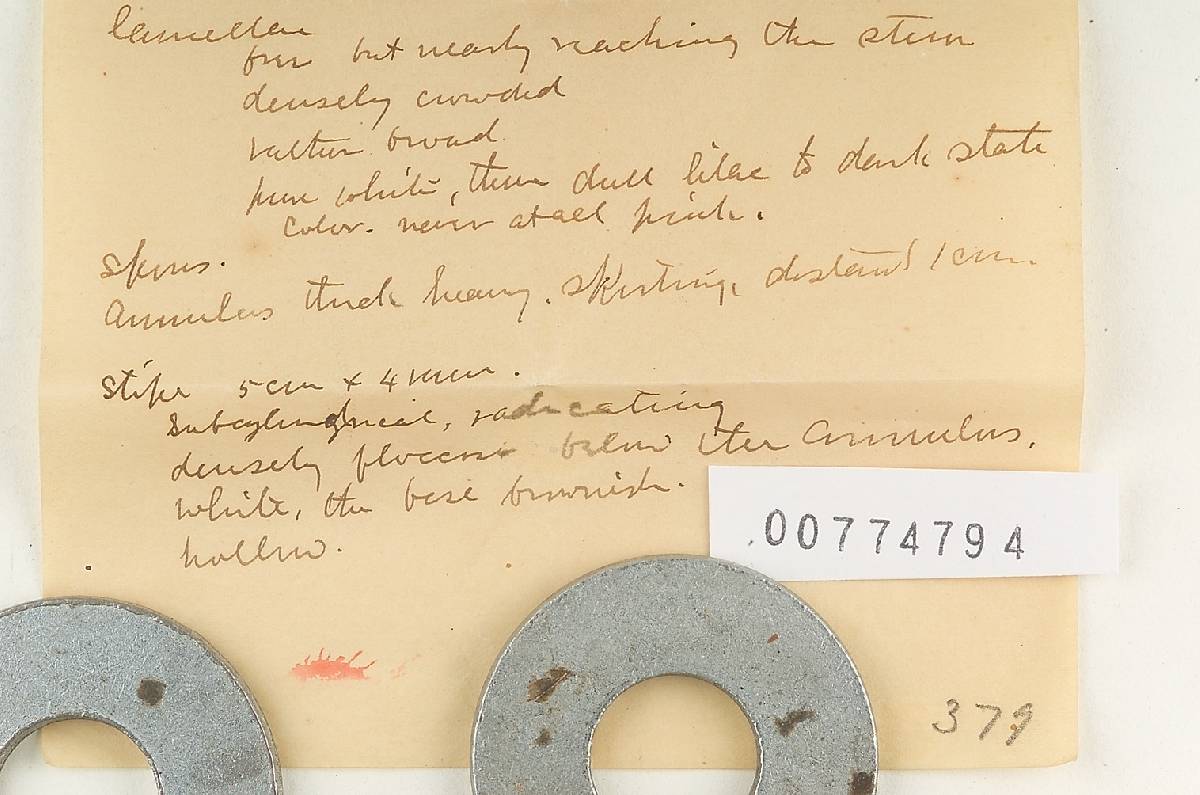 lamellae
free but nearly reaching the stem
densely crowded
rather broad
pure white, then dull lilac to dark slate
color. never at all pink.
Spores.
Annulus thick heavy. skirting, distant 1 cm.
Stipe 5 cm x 4 mm.
Subcylindrical, radicating
densely floccose below the annulus.
white, the base brownish.
hollow.
00774794
379